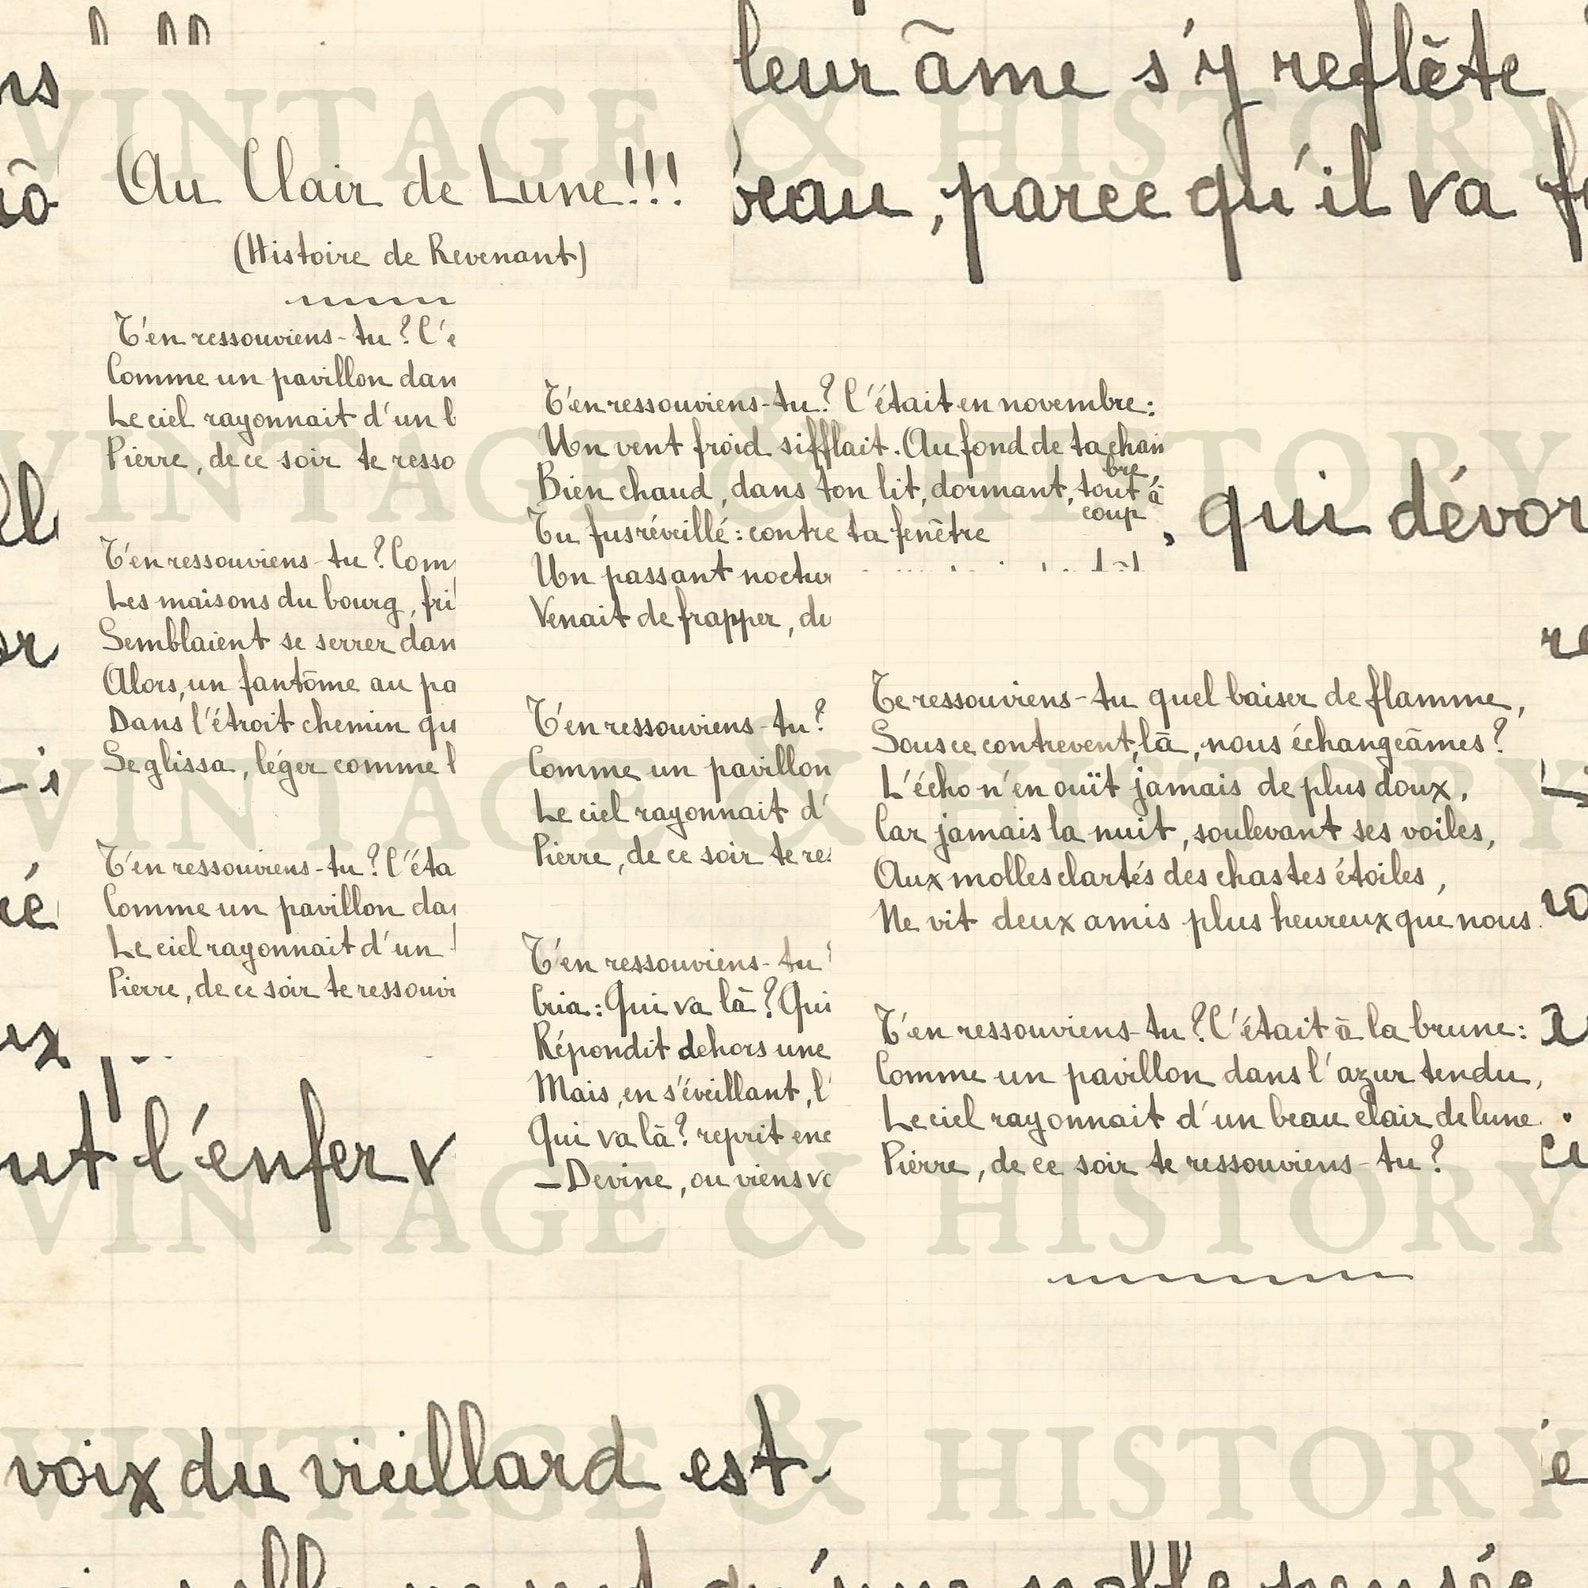 Au Clair de Lune!!!
(Histoire de Revenant)
T'en ressouviens-tu? C'é
Comme un pavillon dan
Le ciel rayonnait d'un b
Pierre, de ce soir te resso
T'en ressouviens-tu? Com
Les maisons du bourg, fri
Semblaient se serrer dan
Alors, un fantôme au pa
Dans l'étroit chemin qu
Se glissa, léger comme l
T'en ressouviens-tu? C'éta
Comme un pavillon da
Le ciel rayonnait d'un
Pierre, de ce soir te ressouvi
T'en ressouviens-tu? C'était en novembre:
Un vent froid sifflait. Au fond de ta cham
bre,
Bien chaud, dans ton lit, dormant, tout à
coup
Tu fus réveillé: contre ta fenêtre
Un passant noctur
Venait de frapper, du
T'en ressouviens-tu?
Comme un pavillon
Le ciel rayonnait d'
Pierre, de ce soir te res
T'en ressouviens-tu?
Cria: Qui va là? Qui
Répondit dehors une
Mais, en s'éveillant, l'
Qui va là? reprit enc
—Devine, ou viens vo
Te ressouviens-tu quel baiser de flamme,
Sous ce contrevent, là, nous échangeâmes?
L'écho n'en ouït jamais de plus doux,
Car jamais la nuit, soulevant ses voiles,
Aux molles clartés des chastes étoiles,
Ne vit deux amis plus heureux que nous.
T'en ressouviens-tu? C'était à la brune:
Comme un pavillon dans l'azur tendu,
Le ciel rayonnait d'un beau clair de lune.
Pierre, de ce soir te ressouviens-tu?
leur âme s'y reflète
beau, parce qu'il va
, qui dévor
l'enfer v
voix du vieillard est
VINTAGE & HISTORY
VINTAGE & HISTORY
VINTAGE & HISTORY
VINTAGE & HISTORY
VINTAGE & HISTORY